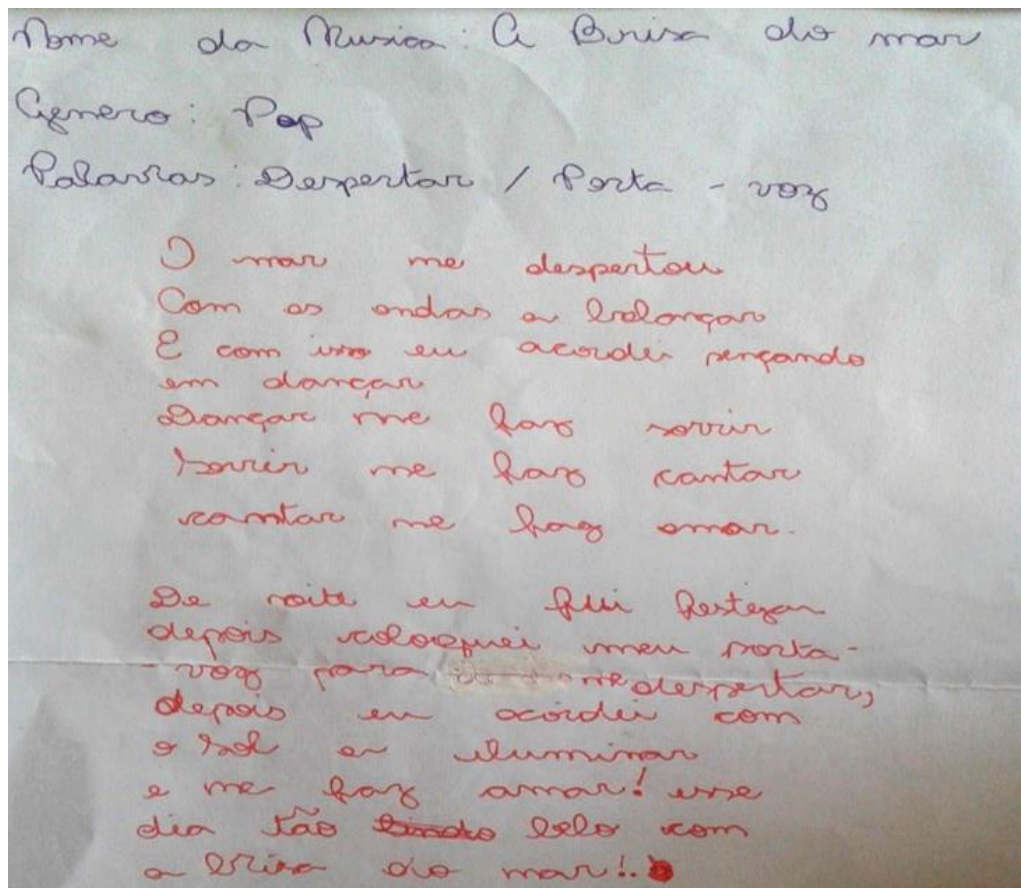 Nome da Musica: A Brisa do mar
Genero: Pop
Palavras: Despertar / Porta - voz
O mar me despertou
Com as ondas a balançar
E com isso eu acordei pençando
em dançar
Dançar me faz sorrir
Sorrir me faz cantar
cantar me faz amar.
De noite eu fui festejar
depois coloquei meu porta-
-voz para me despertar,
depois eu acordei com
o sol a iluminar
e me faz amar! esse
dia tão lindo belo com
a brisa do mar!.